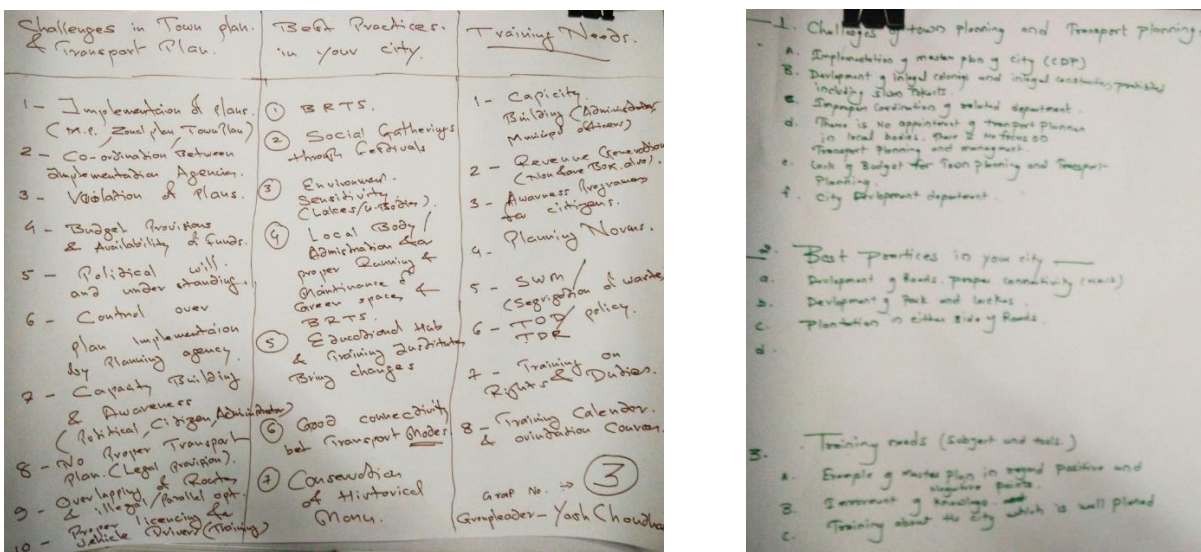 Challenges in Town plan.
& Transport Plan.
1 - Implementaion of plans.
(M.P., Zonal plan, Town Plan)
2 - Co-ordination Between
Implementation Agencies.
3 - Violation of Plans.
4 - Budget Provisions
& Availability of Funds.
5 - Political will.
and understanding.
6 - Control over
plan Implementaion
by Planning agency.
7 - Capacity Building
& Awareness
(Political, Citizen, Administrator)
8 - No Proper Transport
Plan. (Legal Provision).
9 - Overlapping of Routes
& illegal/Parallel opt.
10 - Proper licencing for
Vehicle Drivers (Training)
Best Practices.
in your city.
① BRTS.
② Social Gatherings
through Festivals
③ Environmen.
Sensitivity
(Lakes/
④ Local Body/
Admistration for
proper Running &
Maintinance of
Green spaces &
BRTS.
⑤ Educational Hub
& Training Institutes
Bring changes
⑥ Good connectivity
bet Transport Modes.
⑦ Conservation
of Historical
Monu.
Training Needs.
1 - Capicity
Building (Administrator,
Municipal officers)
2 - Revenue Generation
(Non have Box. also).
3 - Awarness Programes
for citizens.
4 - Planning Norms.
5 - SWM /
(Segrigation of waste)
6 - TOD/ policy.
TDR
7 - Training on
Rights & Duties.
8 - Training Calender.
& orindation Courses.
Grap No. → ③
Groupleader - Yash Choudha
1. Challoges of town planning and Transport planning.
A. Implementation of master plan of city (CDP)
B. Devlopment of inlegal colonies and inlegal construction prohibited
including slum
c. Improper Cordination of related department.
d. There is No appointment of transport planner
in local bodies. There is No focus on
Transport Planning and managment.
e. Lack of Budget for Town planning and Transport
Planning.
f. City Devlopment department.
2. Best practices in your city
a. Devlopment of Roads. proper connectivity
b. Devlopment of Park and
c. Plantation in either side of Roads.
d.
3. Training needs (Subject and tools.)
A. Example of master plan in regard positive and
Negative points.
B. of knowlege
c. Training about the city which is well planed